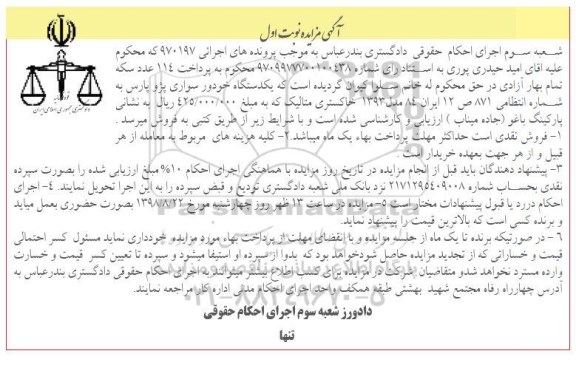 آگهی مزایده نوبت اول
شعبه سوم اجرای احکام حقوقی دادگستری بندرعباس به موجب پرونده های اجرائی ۹۷۰۱۹۷ که محکوم
علیه اقای امید حیدری پوری به استناد رای شماره ۹۷۰۹۹۷۷۷۰۰۱۰۰۴۳۸ محکوم به پرداخت ۱۱۴ عدد سکه
تمام بهار آزادی در حق محکوم له خانم گردیده است که یکدستگاه خودور سواری پژو پارس به
شماره انتظامی ۸۷۱ ص ۱۲ ایران ۸۴ مدل ۱۳۹۳ خاکستری متالیک که به مبلغ ۴۲۵/۰۰۰/۰۰۰ ریال به نشانی
پارکینگ باغو (جاده میناب ) ارزیابی و کارشناسی شده است و با شرایط زیر از طریق کتبی به فروش میرسد .
۱- فروش نقدی است حداکثر مهلت پرداخت بهاء یک ماه میباشد.۲- کلیه هزینه های مربوط به معامله از هر
قبیل و از هر جهت بعهده خریدار است .
۳- پیشنهاد دهندگان باید قبل از انجام مزایده در تاریخ روز مزایده با هماهنگی اجرای احکام ۱۰% مبلغ ارزیابی شده را بصورت سپرده
نقدی بحساب شماره ۲۱۷۱۲۹۵۴۰۹۰۰۸ نزد بانک ملی شعبه دادگستری تودیع و قبض سپرده را به این اجرا تحویل نمایند. ۴- اجرای
احکام دررد یا قبول پیشنهادات مختار است ۵- مزایده در ساعت ۱۳ ظهر روز چهارشنبه مورخ ۱۳۹۸/۸/۲۲ بصورت حضوری بعمل میاید
و برنده کسی است که بالاترین قیمت را پیشنهاد نماید.
۶- در صورتیکه برنده تا یک ماه از جلسه مزایده و با انقضای مهلت از پرداخت بهاء مورد مزایده خودداری نماید مسئول کسر احتمالی
قیمت و خساراتی که از تجدید مزایده حاصل شود خواهد بود که بدوا از سپرده او استیفا میشود و سپرده تا تعیین کسر قیمت و خسارت
وارده مسترد نخواهد شد و متقاضیان شرکت در مزایده برای کسب اطلاع بیشتر میتوانند به اجرای احکام حقوقی دادگستری بندرعباس به
آدرس چهارراه رفاه مجتمع شهید بهشتی طبقه همکف واحد اجرای احکام مدنی اداره کار مراجعه نمایند.
دادورز شعبه سوم اجرای احکام حقوقی
تنها